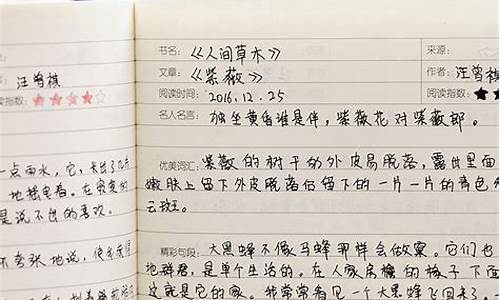 汪曾祺
阅读指数：★★★★☆
一点雨水，它，长出了几片
地摇电着。在密夏的
是说不出的喜欢。
不夸张地说，使我
书名：《人间草木》
来源：
文章：《紫薇》
作者：汪曾祺
阅读时间：2016.12.25
阅读指数：★★
名人名言：独坐黄昏谁是伴，紫薇花对紫薇郎。
优美词汇：紫薇的树干的外皮易脱落，露出里面
嫩肤上留下外皮脱落后留下的一片一片的青色
云斑。
精彩句段：大黑蜂不像马蜂那样会做窠。它们也
地群居，是单个生活的。在人家房檐的椽子下面
这就是它的家。我常常看见一个大黑蜂飞回来了